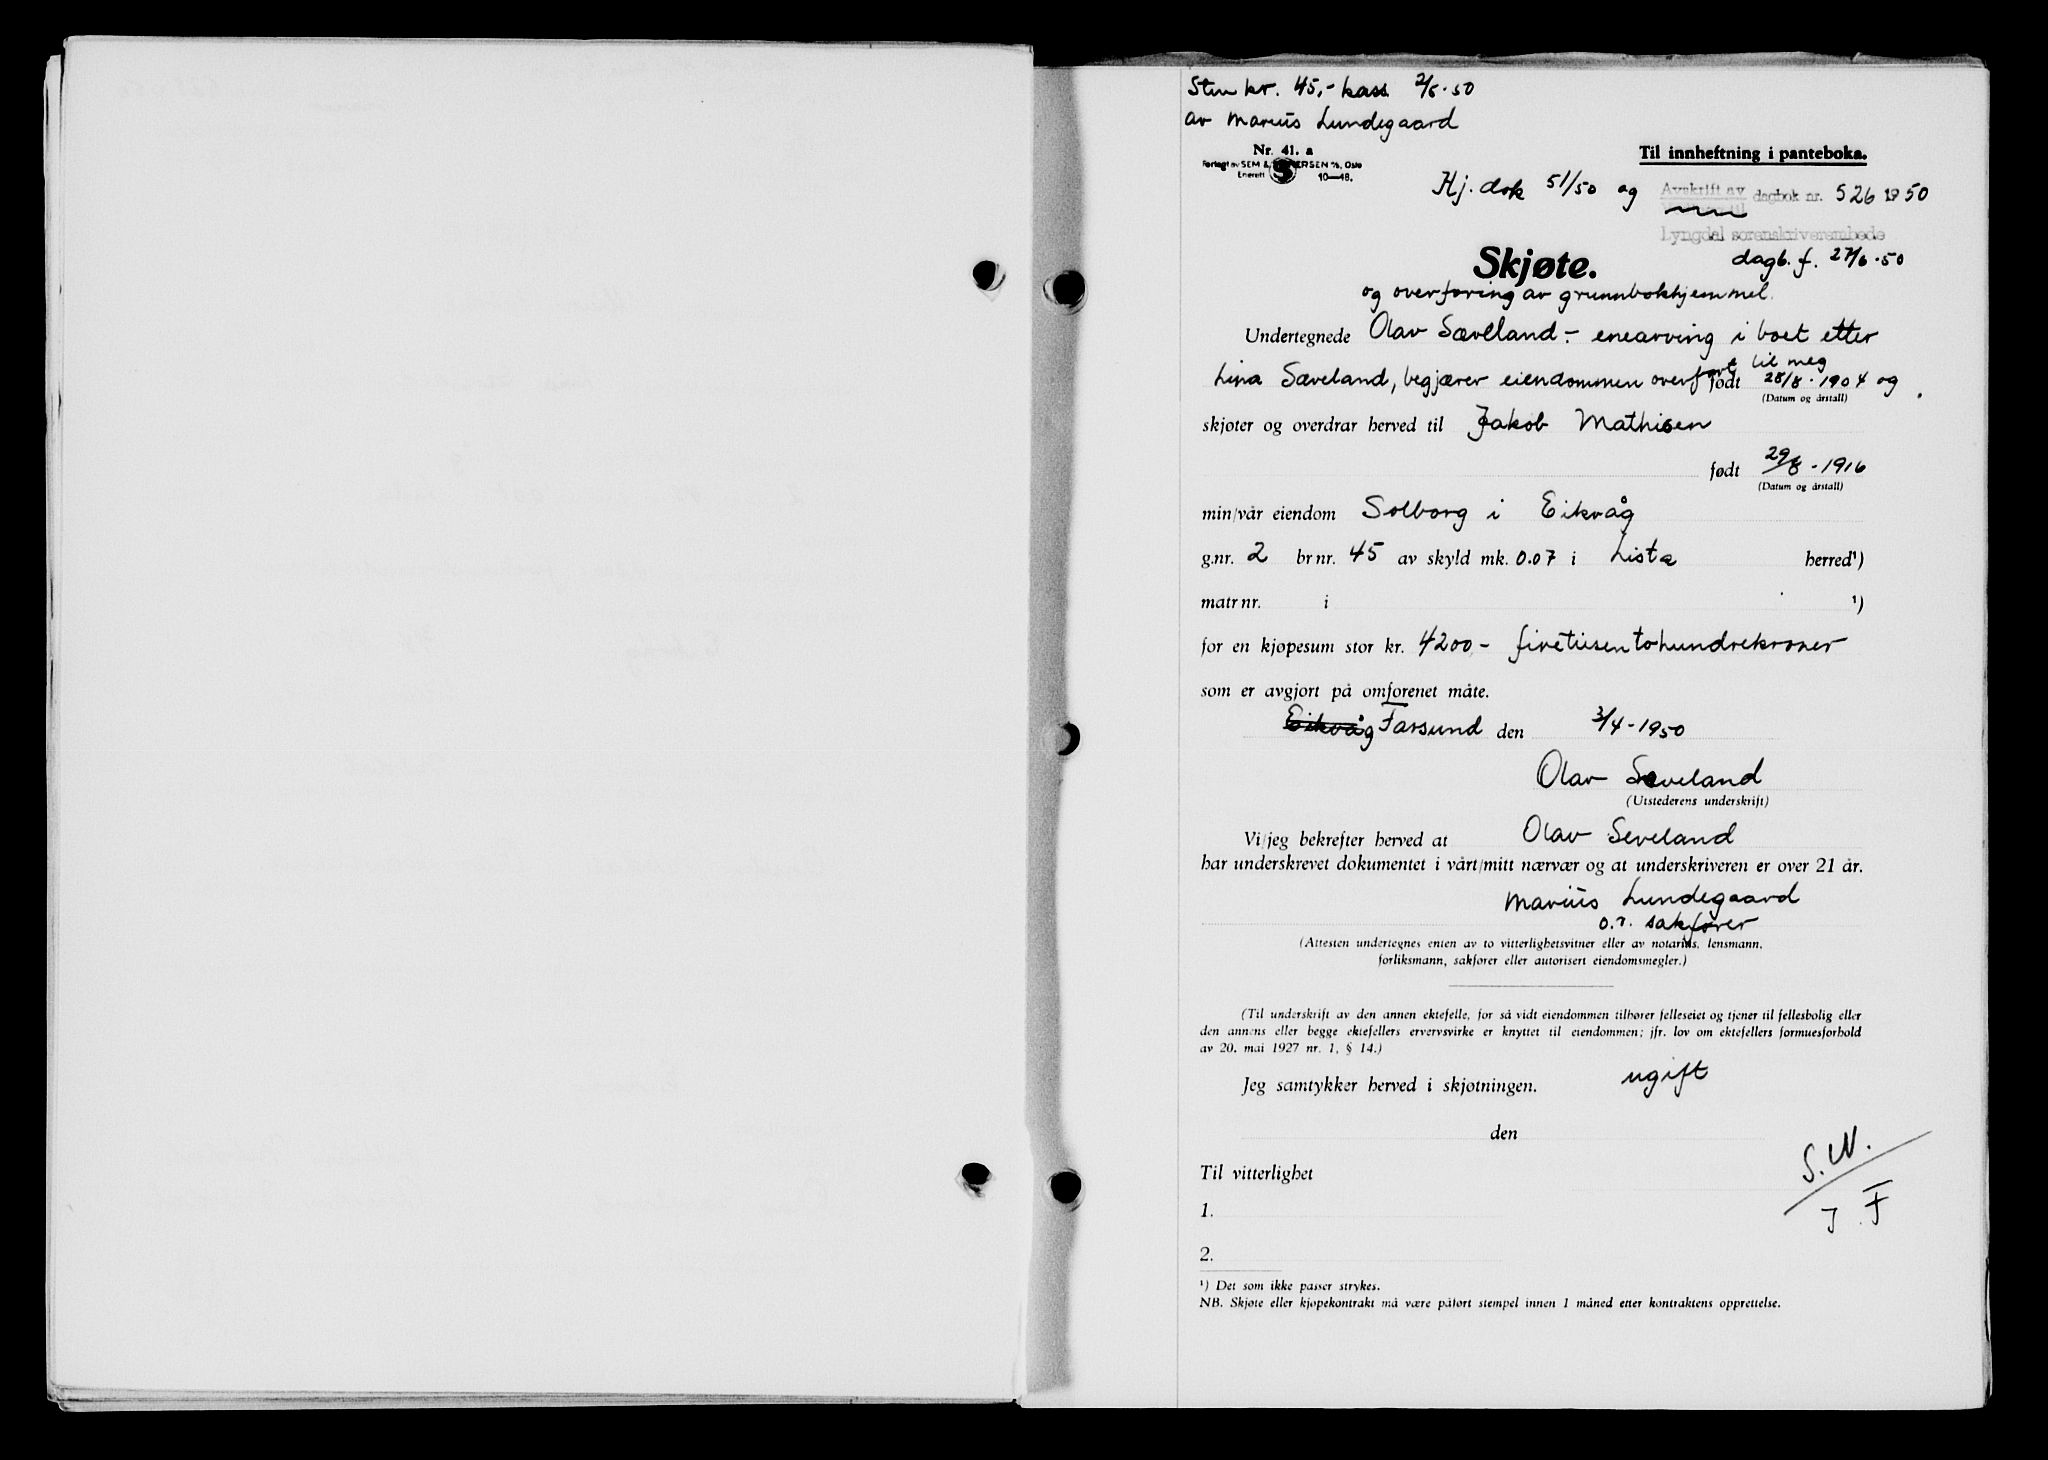 Stem kr. 45,- kass. 2/6-50
av Marius Lundegaard
Nr. 41. a
Til innheftning i panteboka.
Forlagt av SEM & STENERSEN A/S, Oslo
Enerett 10—48.
Hj. dok 51/50 og
Avskrift av dagbok nr. 526 1950
Lyngdal sorenskriverembede
dagb. f. 27/6-50
Skjøte.
og overføring av grunnbokhjemmel.
Undertegnede Olav Sæveland - enearving i boet etter
Lina Sæveland, begjærer eiendommen overført til meg født 28/8-1904 og
(Datum og årstall)
skjøter og overdrar herved til Jakob Mathisen
født 29/8-1916
(Datum og årstall)
min/vår eiendom Solborg i Eikvåg
g.nr. 2 br nr. 45 av skyld mk. 0.07 i Lista herred¹)
matr nr. i ¹)
for en kjøpesum stor kr. 4200,- firetusentohundrekroner
som er avgjort på omforenet måte.
Eikvåg Farsund den 3/4-1950
Olav Sæveland
(Utstederens underskrift)
Vi/jeg bekrefter herved at Olav Seveland
har underskrevet dokumentet i vårt/mitt nærvær og at underskriveren er over 21 år.
Marius Lundegaard
o.r. sakfører
(Attesten undertegnes enten av to vitterlighetsvitner eller av notarius, lensmann,
forliksmann, sakfører eller autorisert eiendomsmegler.)
(Til underskrift av den annen ektefelle, for så vidt eiendommen tilhører felleseiet og tjener til fellesbolig eller
den annens eller begge ektefellers ervervsvirke er knyttet til eiendommen; jfr. lov om ektefellers formuesforhold
av 20. mai 1927 nr. 1, § 14.)
Jeg samtykker herved i skjøtningen. ugift
den
Til vitterlighet
1.
2.
S.N.
J F
¹) Det som ikke passer strykes.
NB. Skjøte eller kjøpekontrakt må være påført stempel innen 1 måned etter kontraktens opprettelse.